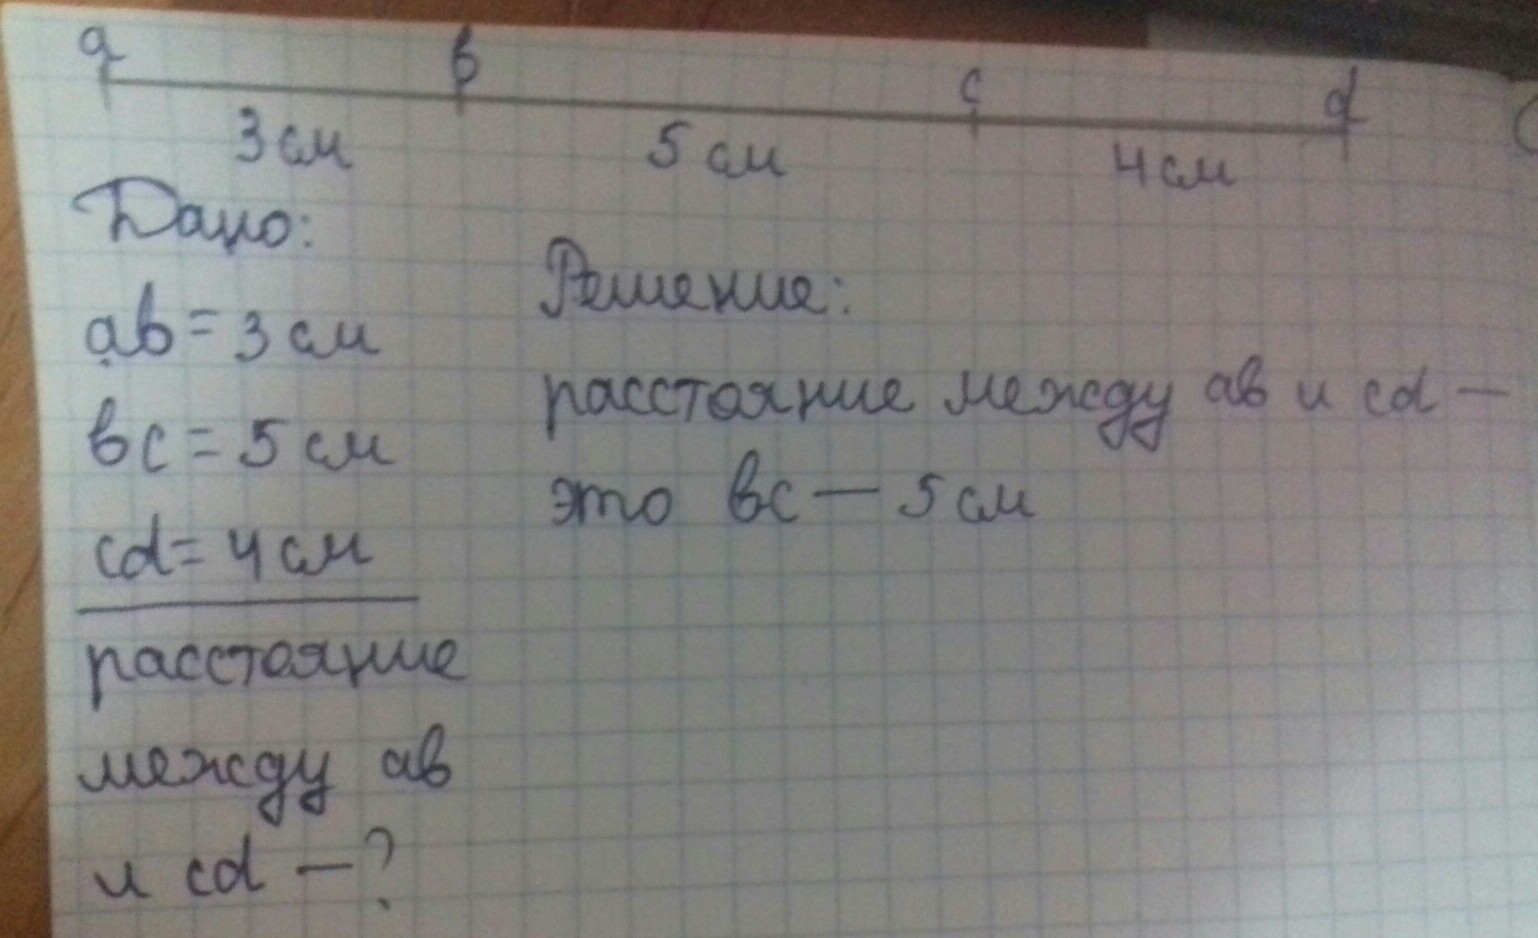 a в c d
3 см 5 см 4 см
Дано:
Решение:
ab = 3 см
расстояние между ав и cd —
вс = 5 см
это вс — 5 см
cd = 4 см
расстояние
между ав
и cd — ?